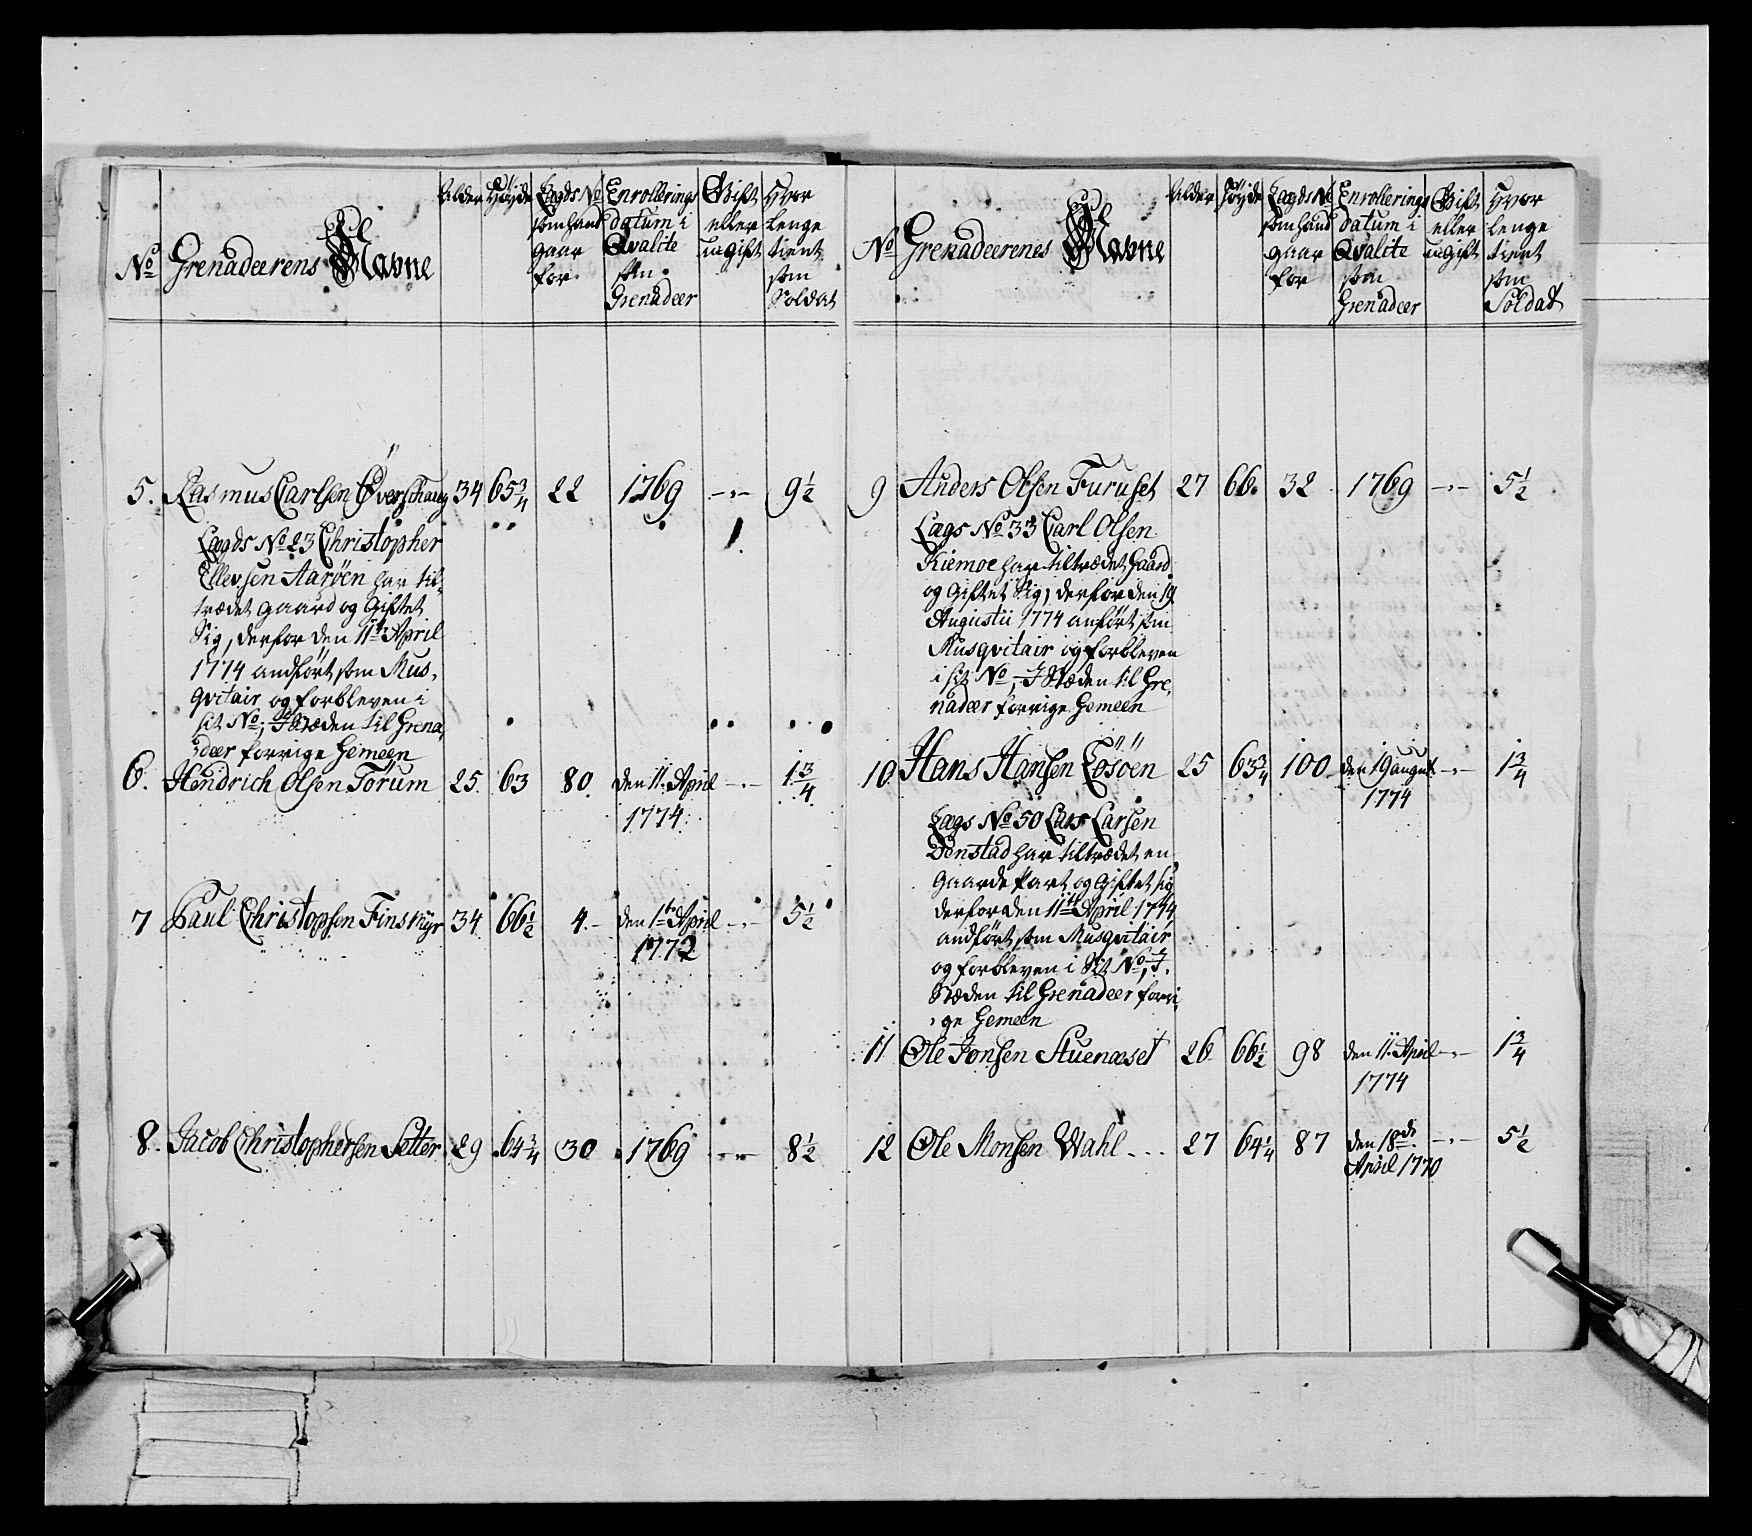 No Grenadeerens Navne
Alder
Høyde
Lægds No
som hand
gaar
for
Enrollerings
datum i
Qvalite
som
Grenadeer
Gift
eller
ugift
Hvor
lenge
tient
som
Soldat
5. Rasmus Carlsen Øverschaug 34 65 3/4 22 1769 -"- 9 1/2
Lægds No 23 Christopher
Ellevsen Aarøen har til-
trædet gaard og Giftet
Sig, derfor den 11te April
1774 andført som Mus-
qvitair og forbleven i
sit No, I Stæden til Grena-
deer forrige Gemeen
6. Hendrich Olsen Torum 25 63 80 den 11. April -"- 1 3/4
1774
7 Paul Christopsen Finsmyr 34 66 1/2 4.- den 1te April -"- 5 1/2
1772
8. Jacob Christophersen Setter 29 64 3/4 30 1769 -"- 8 1/2
No Grenadeerenes Navne
Alder
Høyde
Lægds No
som hand
gaar
for
Enrollerings
datum i
Qvalite
som
Grenadeer
Gift
eller
ugift
Hvor
lenge
tient
som
Soldat
9 Anders Olsen Furuset 27 66. 32 1769 -"- 5 1/2
Lægs No 33 Carl Olsen
Kiemoe har tiltrædet Gaard
og Giftet Sig, derfor den 19
Augustii 1774 anført som
Musqvitair og forbleven
i sit No, I Stæden til Gre-
nadeer forrige Gemeen
10 Hans Hansen 25 63 3/4 100 den 19 august -"- 1 3/4
1774
Lægs No 50 Lars Larsen
Denstad har tiltrædet en
Gaarde Part og Giftet sig
derfor den 11te April 1774
andført som Musqvitair
og forbleven i Sit No, I
Stæden til Grenadeer forri-
ge Gemeen
11 Ole Jonsen Stuenæset 26 66 1/2 98 den 11. April -"- 1 3/4
1774
12 Ole Monsen Wahl 27 64 1/4 87 den 18de -"- 5 1/2
April 1770